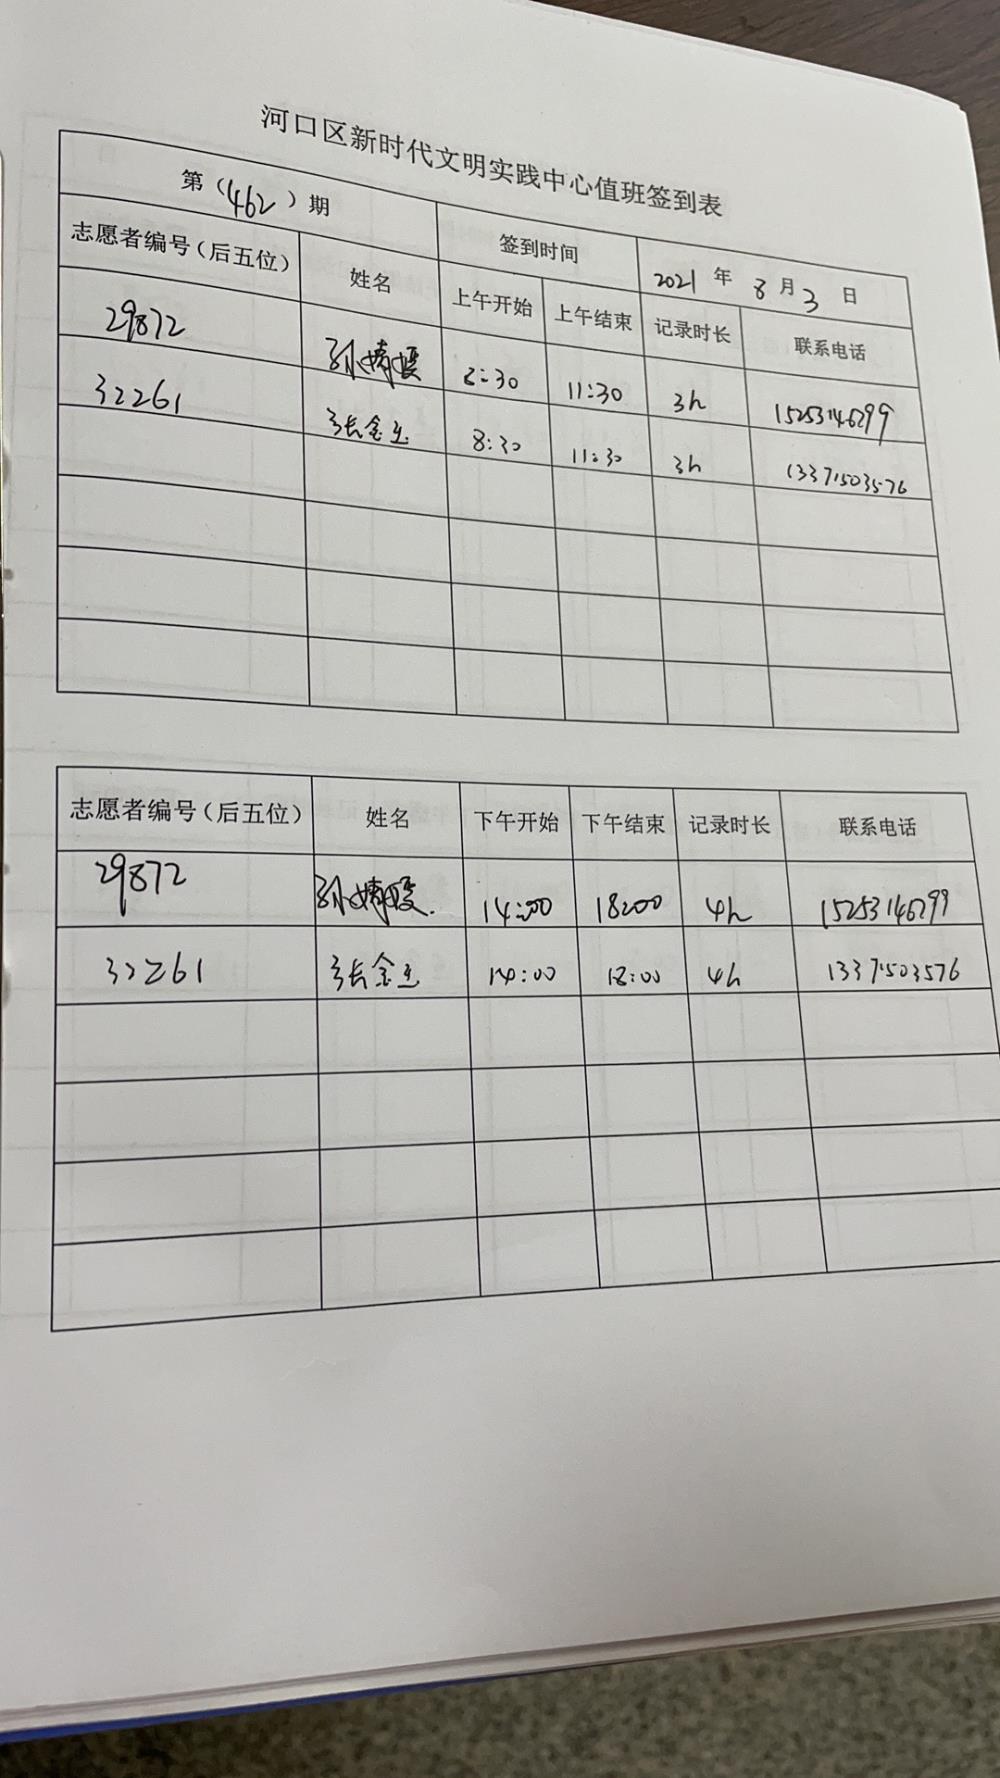 河口区新时代文明实践中心值班签到表
第（462）期 签到时间 2021 年 8 月 3 日
志愿者编号（后五位） 姓名 上午开始 上午结束 记录时长 联系电话
29872 孙婧 8:30 11:30 3h
32261 张金玉 8:30 11:30 3h 13371503576
志愿者编号（后五位） 姓名 下午开始 下午结束 记录时长 联系电话
29872 孙婧 14:00 18:00 4h
32261 张金玉 14:00 18:00 4h 13371503576